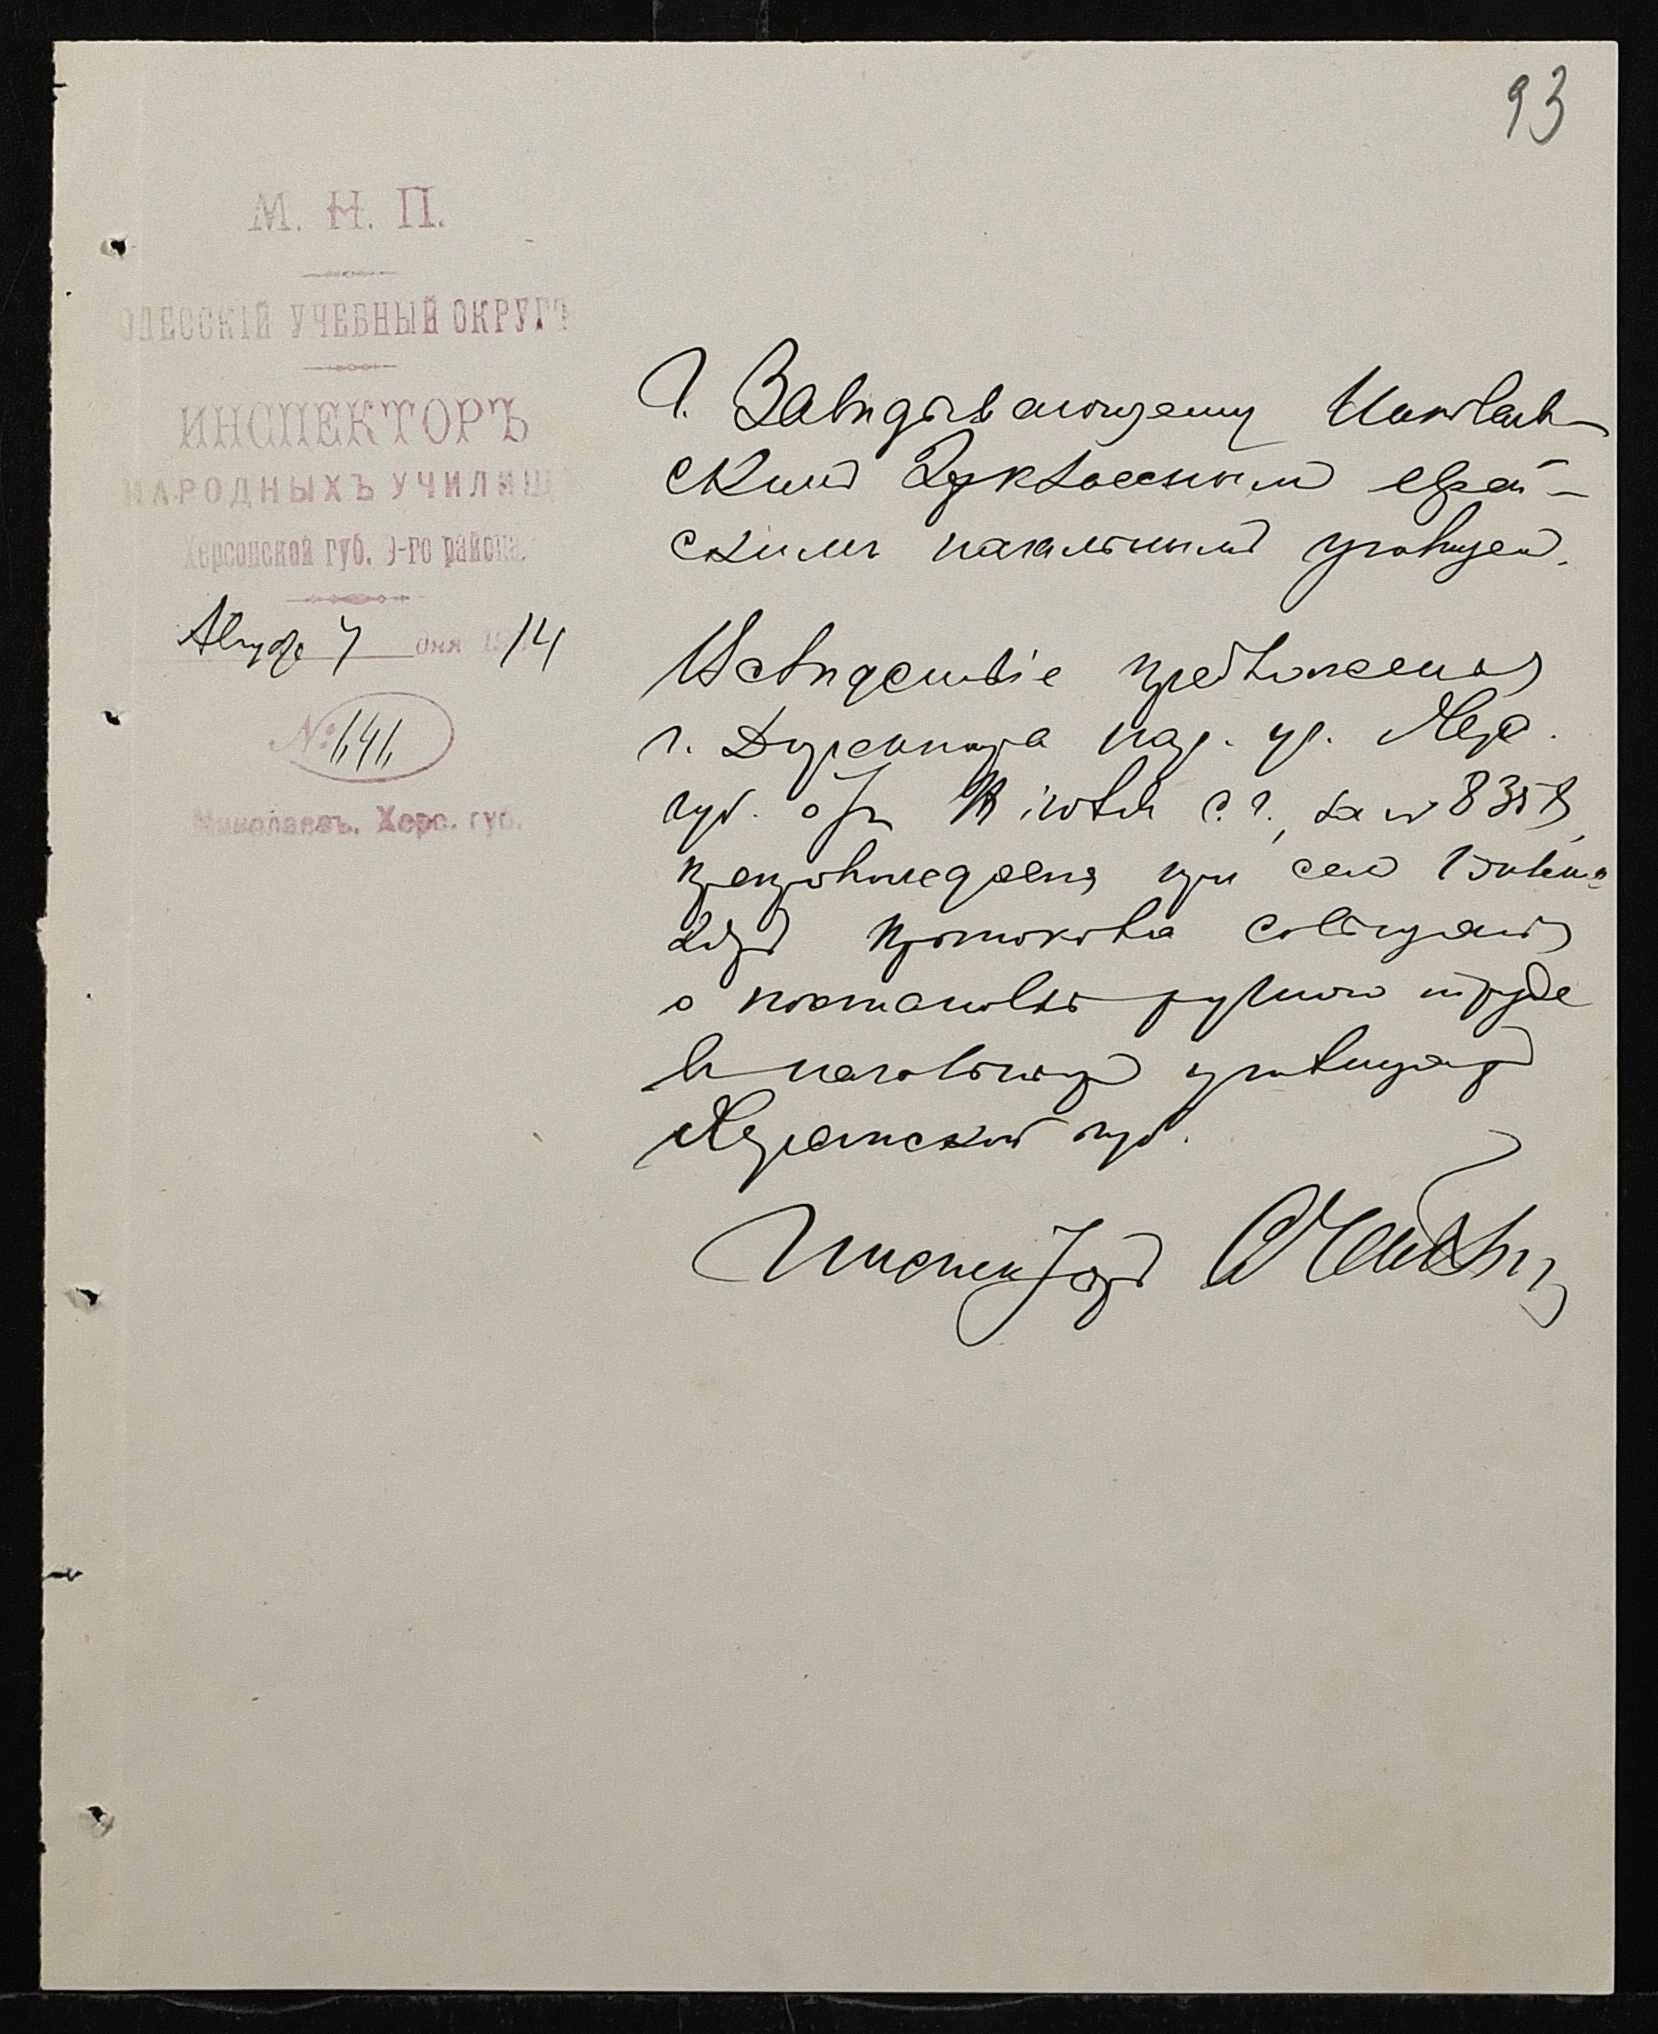 93
М. Н. П.
ОДЕССКІЙ УЧЕБНЫЙ ОКРУГЪ
ИНСПЕКТОРЪ
НАРОДНЫХЪ УЧИЛИЩЪ
Херсонской губ. 9-го района.
Августа 7 дня 1914
№ 1141
Николаевъ, Херс. губ.
Г. Завѣдывающему Николаев-
скимъ 2хкласснымъ еврей-
скимъ начальнымъ училищемъ.
Вслѣдствіе предложенія
г. Директора нар. уч. Херс.
губ. отъ іюля с. г., за № 8358,
препровождаю при семъ
протокола совѣщанія
о постановкѣ ручного труда
въ начальныхъ училищахъ
Херсонской губ.
Инспекторъ